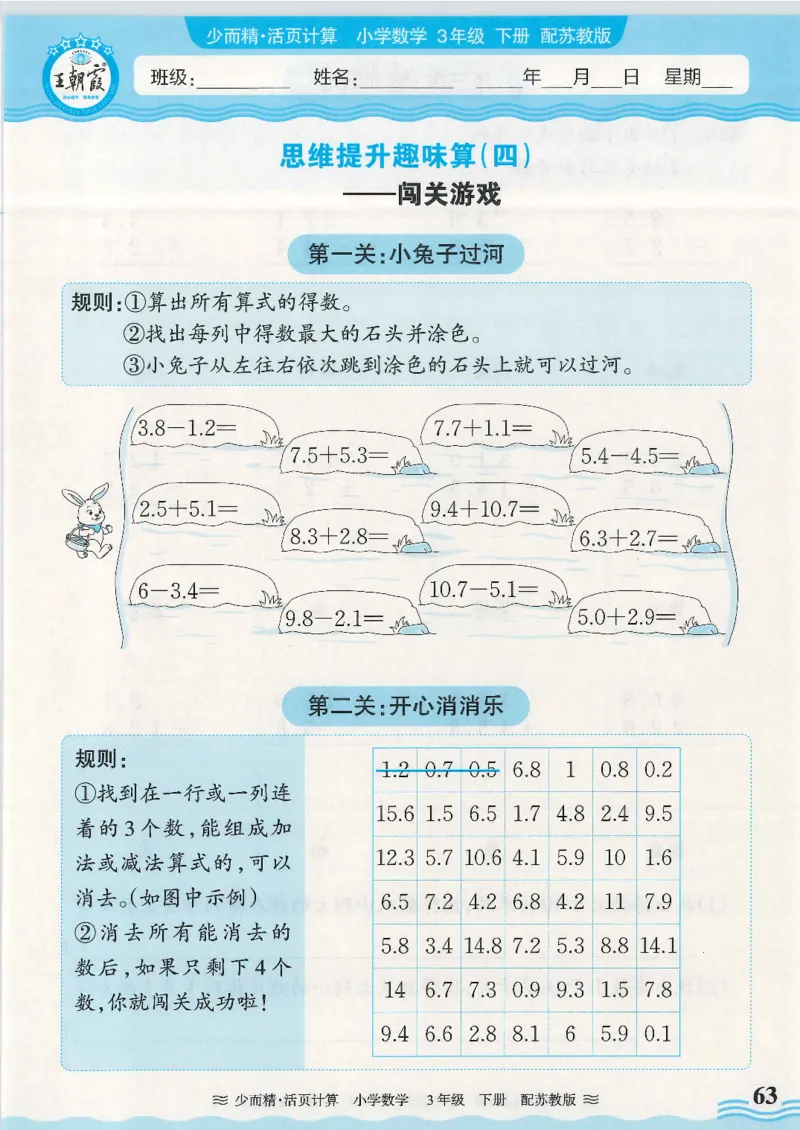 少而精·活页计算 小学数学 3年级 下册 配苏教版
王朝霞
班级: 姓名: 年 月 日 星期
思维提升趣味算(四)
——闯关游戏
第一关:小兔子过河
规则:①算出所有算式的得数。
②找出每列中得数最大的石头并涂色。
③小兔子从左往右依次跳到涂色的石头上就可以过河。
3.8-1.2= 7.7+1.1=
7.5+5.3= 5.4-4.5=
2.5+5.1= 9.4+10.7=
8.3+2.8= 6.3+2.7=
6-3.4= 10.7-5.1=
9.8-2.1= 5.0+2.9=
第二关:开心消消乐
规则:
①找到在一行或一列连
着的3个数,能组成加
法或减法算式的,可以
消去。(如图中示例)
②消去所有能消去的
数后,如果只剩下4个
数,你就闯关成功啦!
1.2 0.7 0.5 6.8 1 0.8 0.2
15.6 1.5 6.5 1.7 4.8 2.4 9.5
12.3 5.7 10.6 4.1 5.9 10 1.6
6.5 7.2 4.2 6.8 4.2 11 7.9
5.8 3.4 14.8 7.2 5.3 8.8 14.1
14 6.7 7.3 0.9 9.3 1.5 7.8
9.4 6.6 2.8 8.1 6 5.9 0.1
少而精·活页计算 小学数学 3年级 下册 配苏教版
63